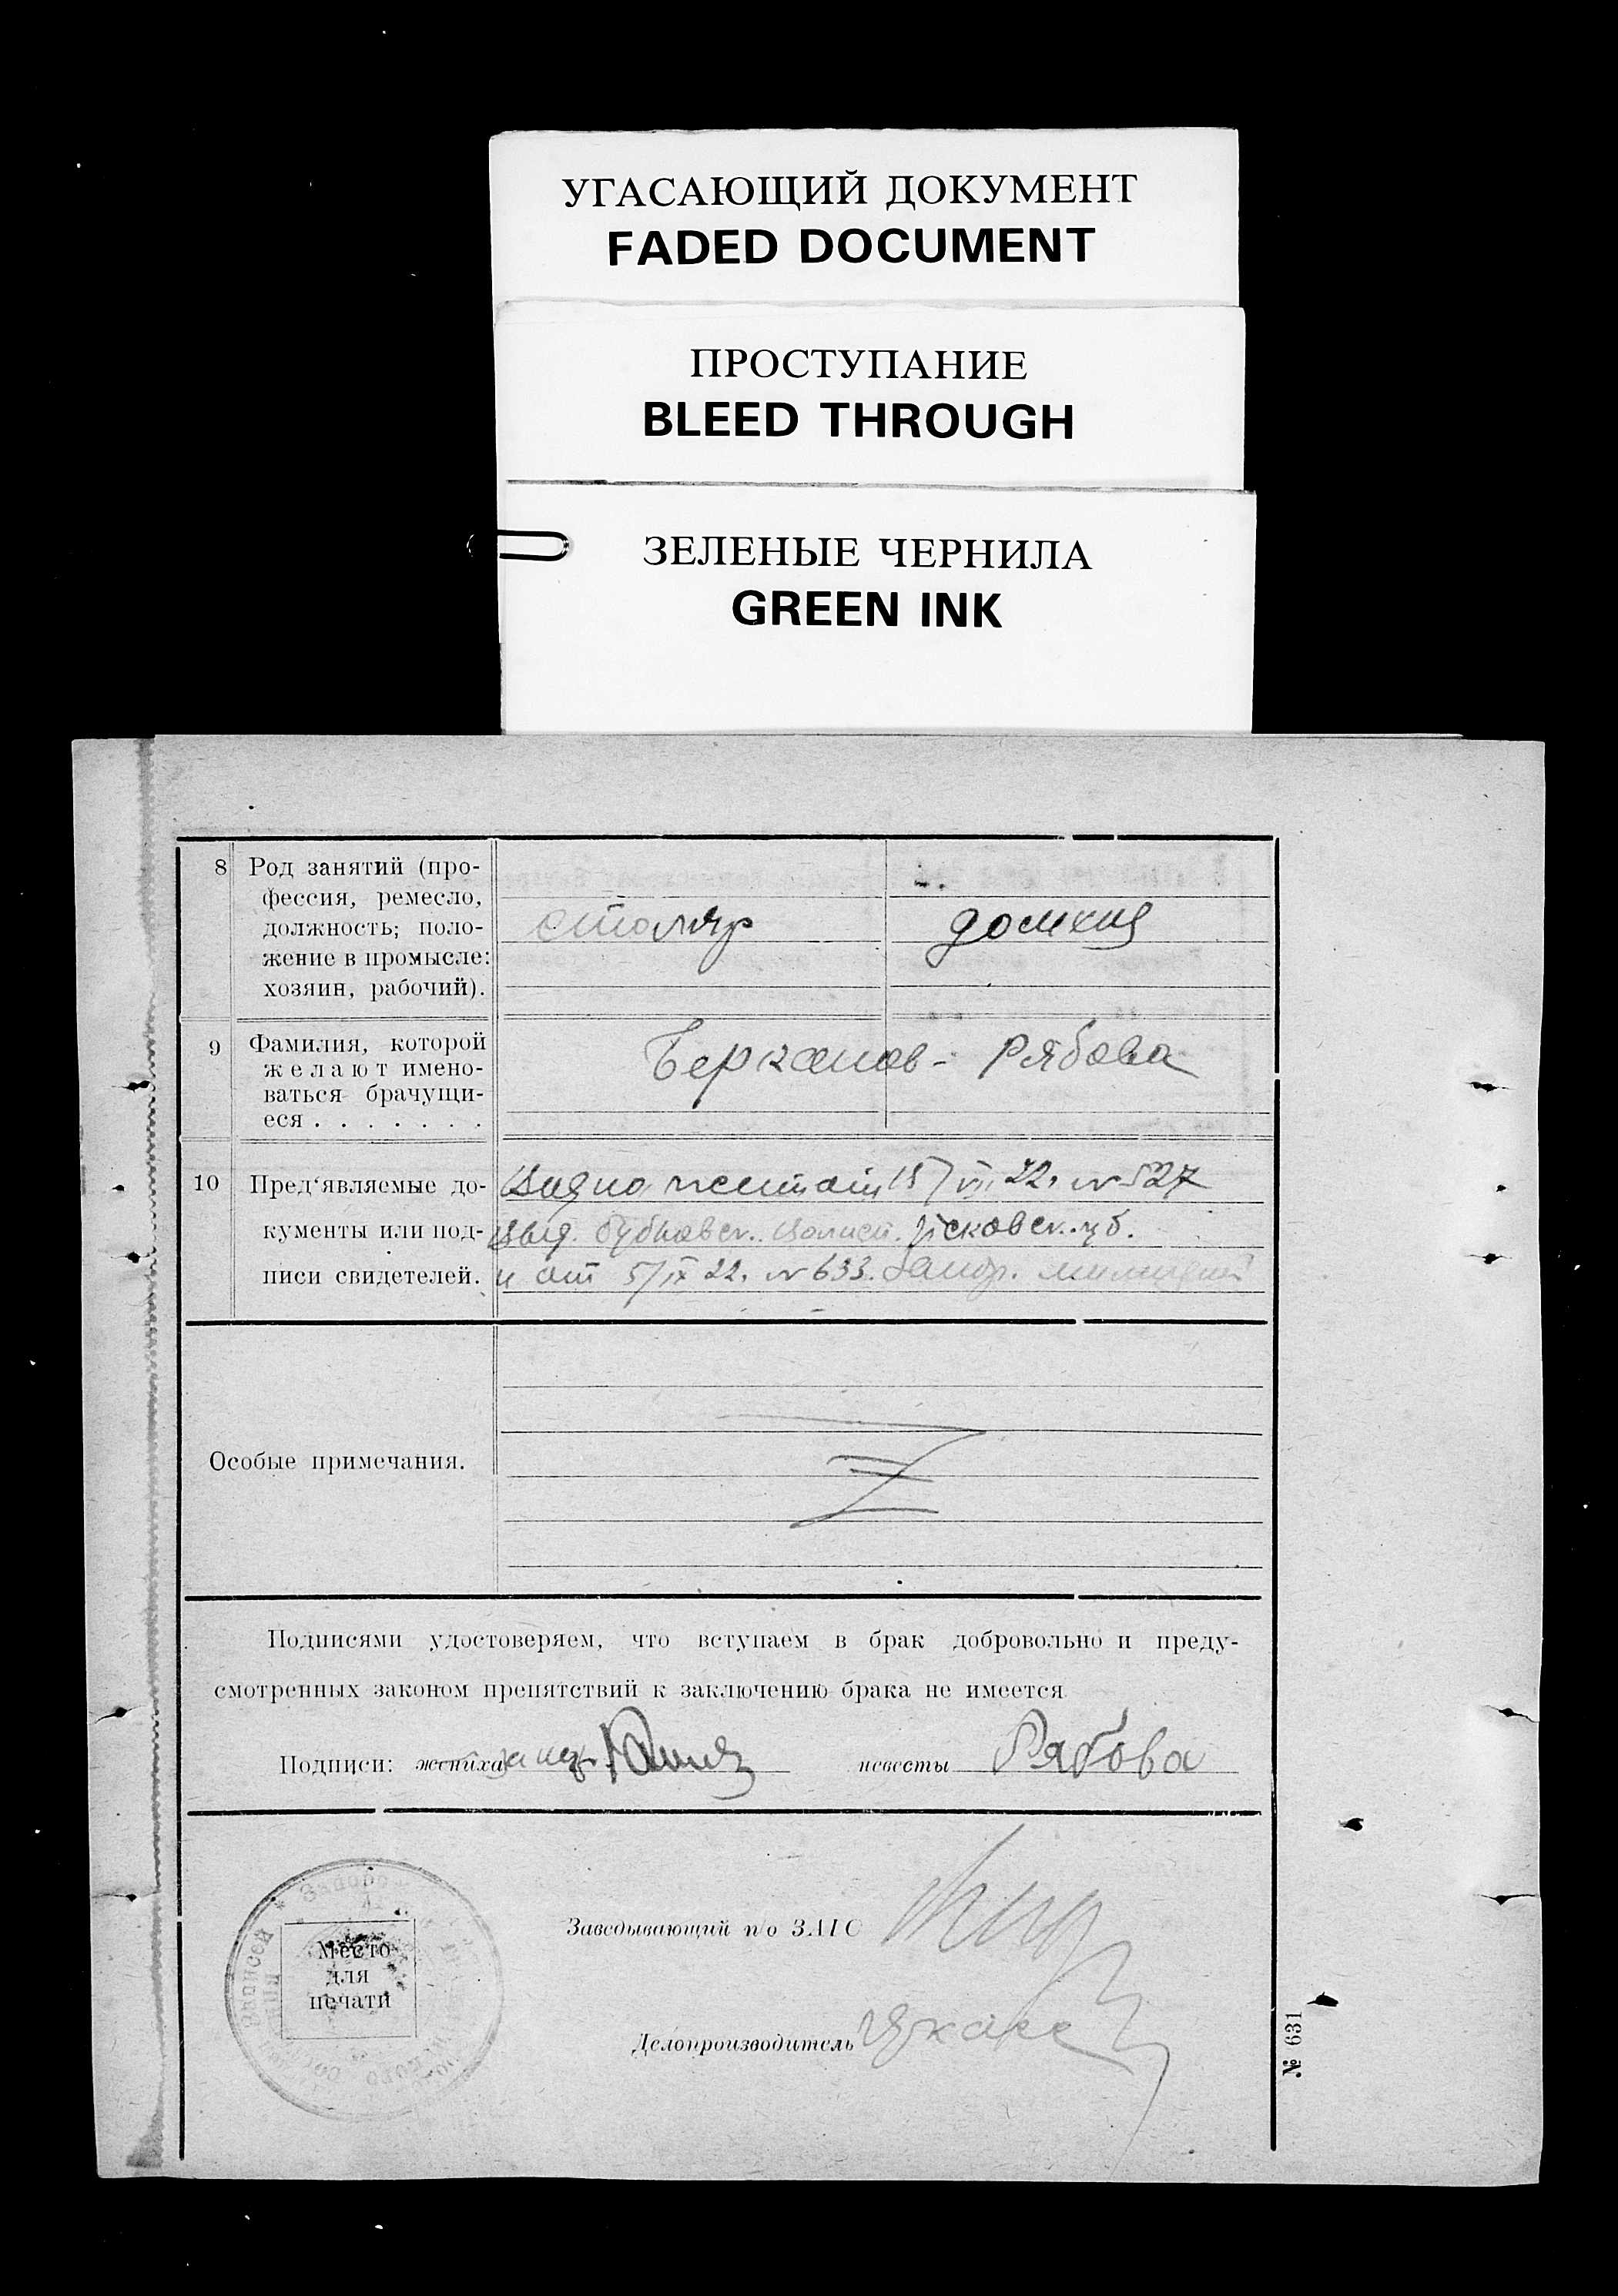 УГАСАЮЩИЙ ДОКУМЕНТ
FADED DOCUMENT
ПРОСТУПАНИЕ
BLEED THROUGH
ЗЕЛЕНЫЕ ЧЕРНИЛА
GREEN INK
8 Род занятий (про-
фессия, ремесло,
должность; поло-
жение в промысле:
хозяин, рабочий).
столяр
9 Фамилия, которой
желают имено-
ваться брачущи-
еся . . . . . . .
Рябова
10 Пред‘являемые до-
кументы или под-
писи свидетелей.
15/VI 22. № 527
Псковск. губ.
и от 5/IX 22. № 633. милицией
Особые примечания.
Подписями удостоверяем, что вступаем в брак добровольно и преду-
смотренных законом препятствий к заключению брака не имеется
Подписи: жениха невесты Рябова
Заведывающий п/о ЗАГС
Место
для
печати
Делопроизводитель
№ 631